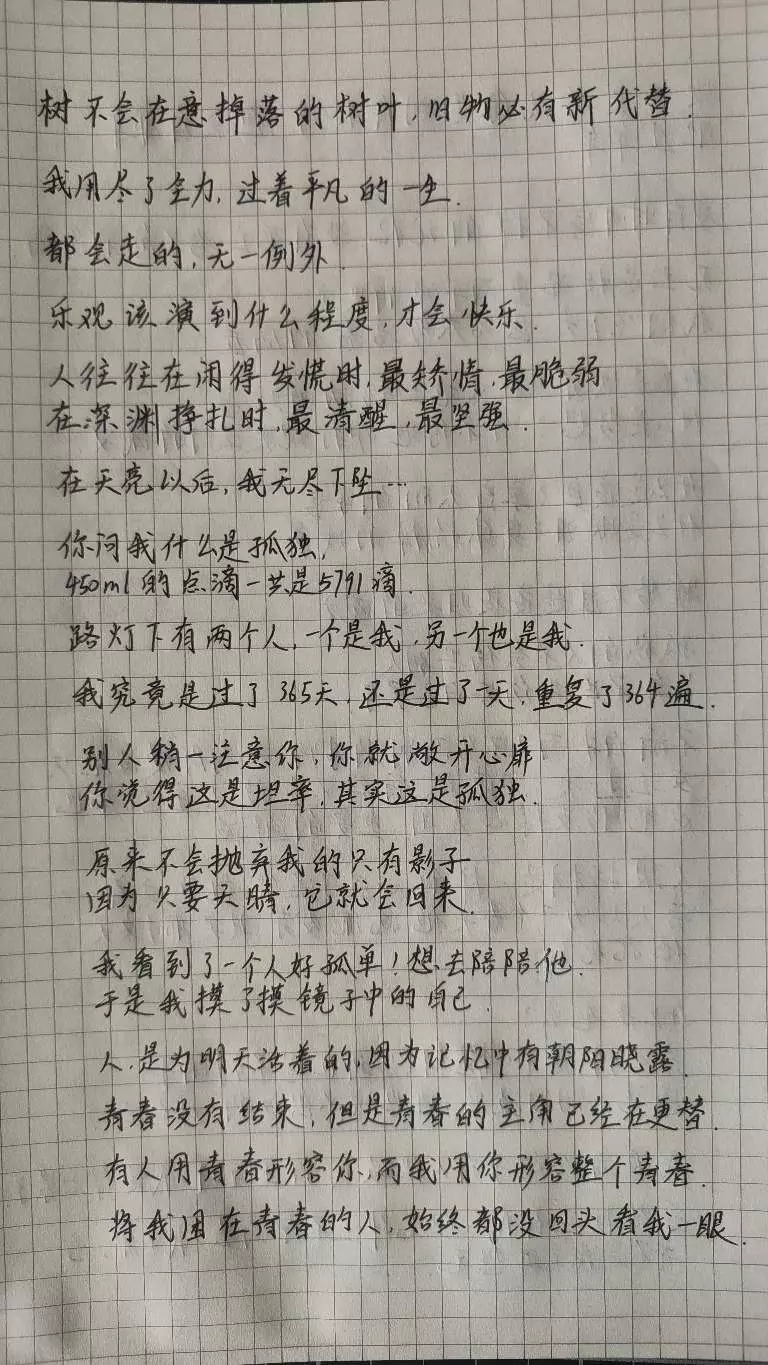 树不会在意掉落的树叶,旧物必有新代替.
我用尽了全力,过着平凡的一生.
都会走的,无一例外.
乐观该演到什么程度,才会快乐.
人往往在闲得发慌时,最矫情,最脆弱
在深渊挣扎时,最清醒,最坚强.
在天亮以后,我无尽下坠…
你问我什么是孤独,
450ml的点滴一共是5791滴.
路灯下有两个人,一个是我,另一个也是我.
我究竟是过了365天,还是过了一天,重复了364遍.
别人稍一注意你,你就敞开心扉
你觉得这是坦率,其实这是孤独.
原来不会抛弃我的只有影子
因为只要天晴,它就会回来.
我看到了一个人好孤单!想去陪陪他.
于是我摸了摸镜子中的自己.
人,是为明天活着的,因为记忆中有朝阳晓露.
青春没有结束,但是青春的主角已经在更替.
有人用青春形容你,而我用你形容整个青春.
将我困在青春的人,始终都没回头看我一眼.